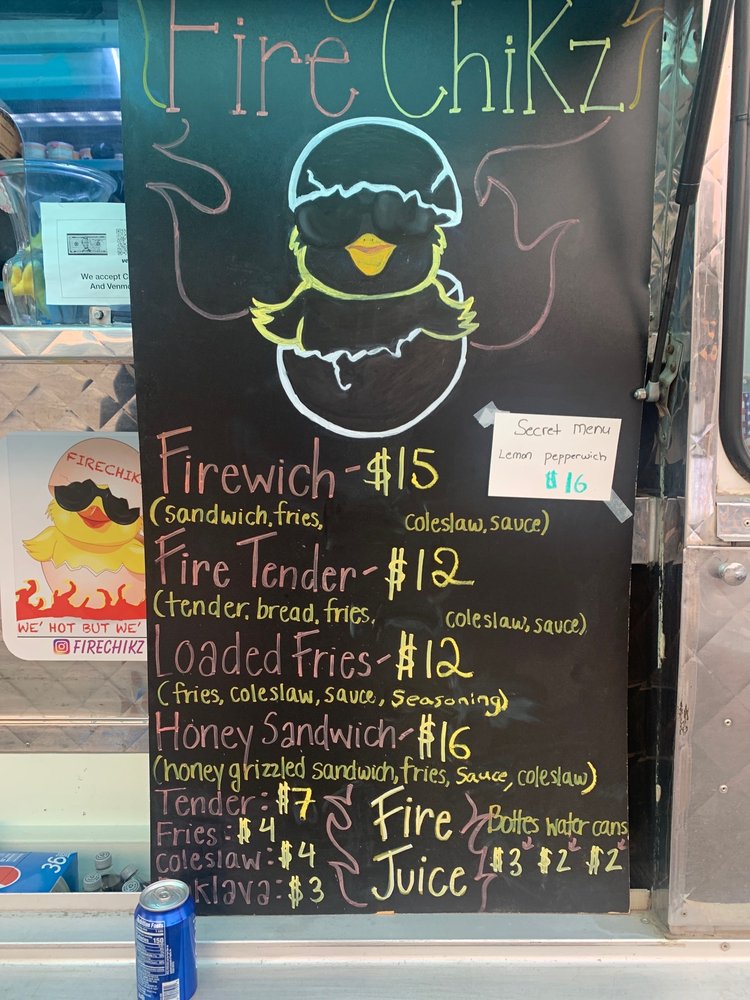 Fire Chikz
We accept C
And Venmo
FIRECHIK
WE' HOT BUT WE'
FIRECHIKZ
Secret menu
Lemon pepperwich
$16
Firewich - $15
(sandwich, fries, coleslaw, sauce)
Fire Tender - $12
(tender, bread, fries, coleslaw, sauce)
Loaded Fries - $12
(fries, coleslaw, sauce, seasoning)
Honey Sandwich - $16
(honey grizzled sandwich, fries, sauce, coleslaw)
Tender: $7
Fries: $4
coleslaw: $4
klava: $3
Fire
Juice
Bottes water cans
$3 $2 $2
36
Nutrition Facts
150